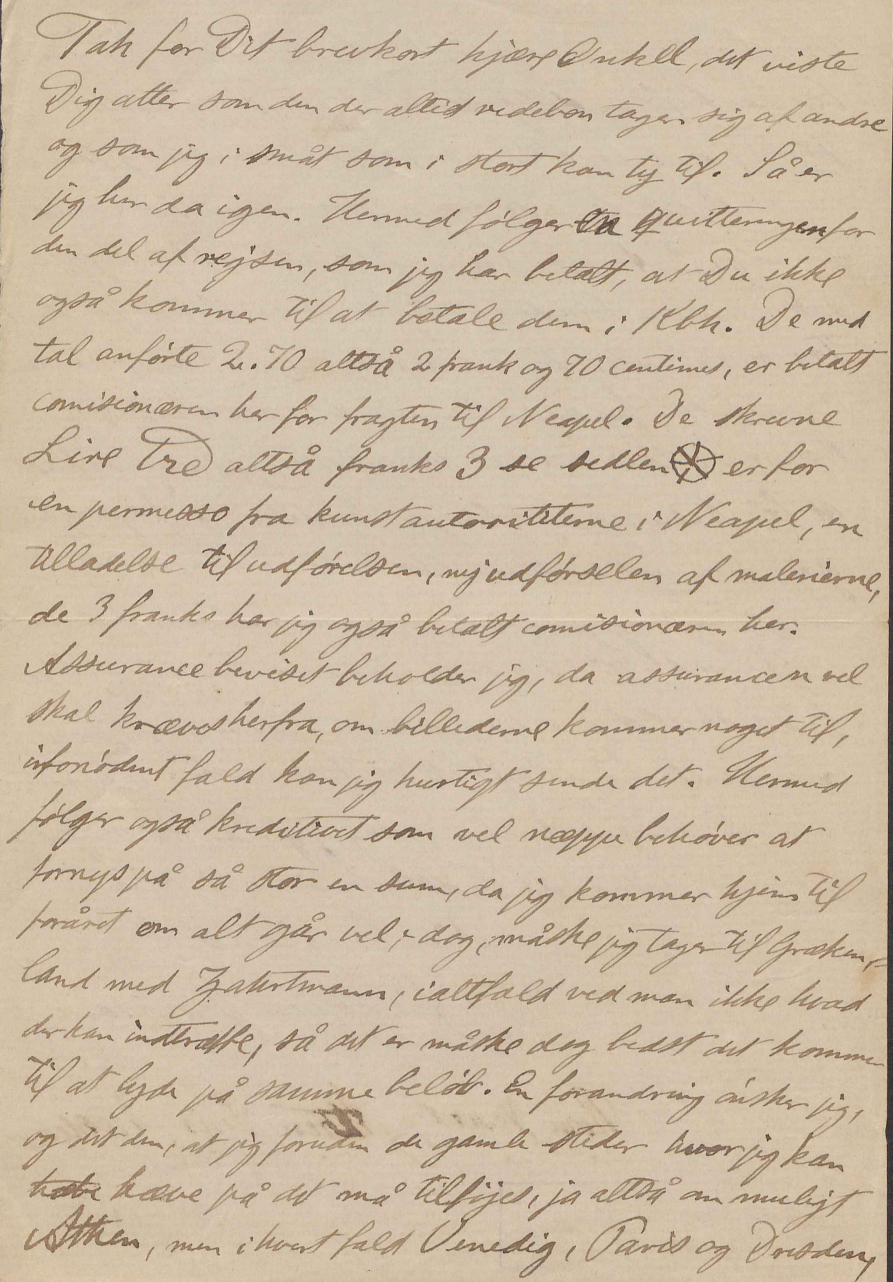 Tak for Dit brevkort kjære Onkel, det viste
Dig atter som den der altid redebon tager sig af andre
og som jeg i småt som i stort kan ty til. Så er
jeg her da igen. Hermed følger en quitteringen for
den del af rejsen, som jeg har betalt, at Du ikke
også kommer til at betale dem i Kbh. De med
tal anførte 2.70 altså 2 frank og 70 centimes, er betalt
comisionæren her for fragten til Neapel. De skrevne
Lire Tre altså franks 3 se sedlen er for
en permesso fra kunstautorititerne i Neapel, en
tilladelse til udførelsen, nej udførselen af malerierne,
de 3 franks har jeg også betalt comisionæren her.
Assurance beviset beholder jeg, da assurancen vel
skal kræves herfra, om billederne kommer noget til,
ifornødent fald kan jeg hurtigt sende det. Hermed
følger også kreditivet som vel næppe behøver at
fornys på så stor en sum, da jeg kommer hjem til
foråret om alt går vel, dog, måske jeg tager til Græken-
land med Zahrtmann, ialtfald ved man ikke hvad
der kan indtræffe, så det er måske dog bedst det kommer
til at lyde på samme beløb. En forandring ønsker jeg,
og det den, at jeg foruden de gamle steder hvor jeg kan
hæve på det må tilføjes, ja altså om muligt
Athen, men i hvert fald Venedig, Paris og Dresden,